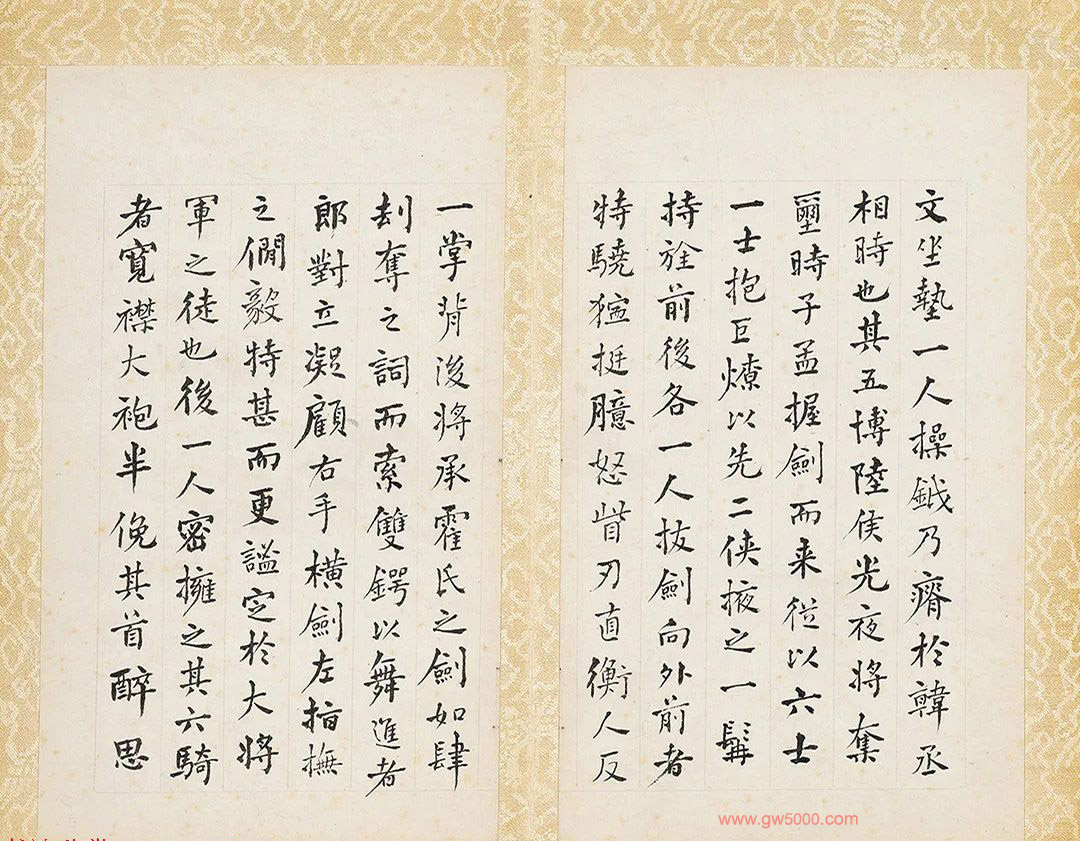 文坐墊一人操鉞乃瘠於韓丞
相時也其五博陸侯光夜將奪
璽時子孟握劍而来從以六士
一士抱巨燎以先二俠掖之一髯
持旌前後各一人拔劍向外前者
特驍猛挺臆怒眥刃直衡人反
一掌背後將承霍氏之劍如肆
刦奪之詞而索雙鍔以舞進者
郎對立凝顧右手橫劍左指撫
之僩毅特甚而更謐定於大將
軍之徒也後一人密擁之其六騎
者寬襟大袍半俛其首醉思
www.gw5000.com